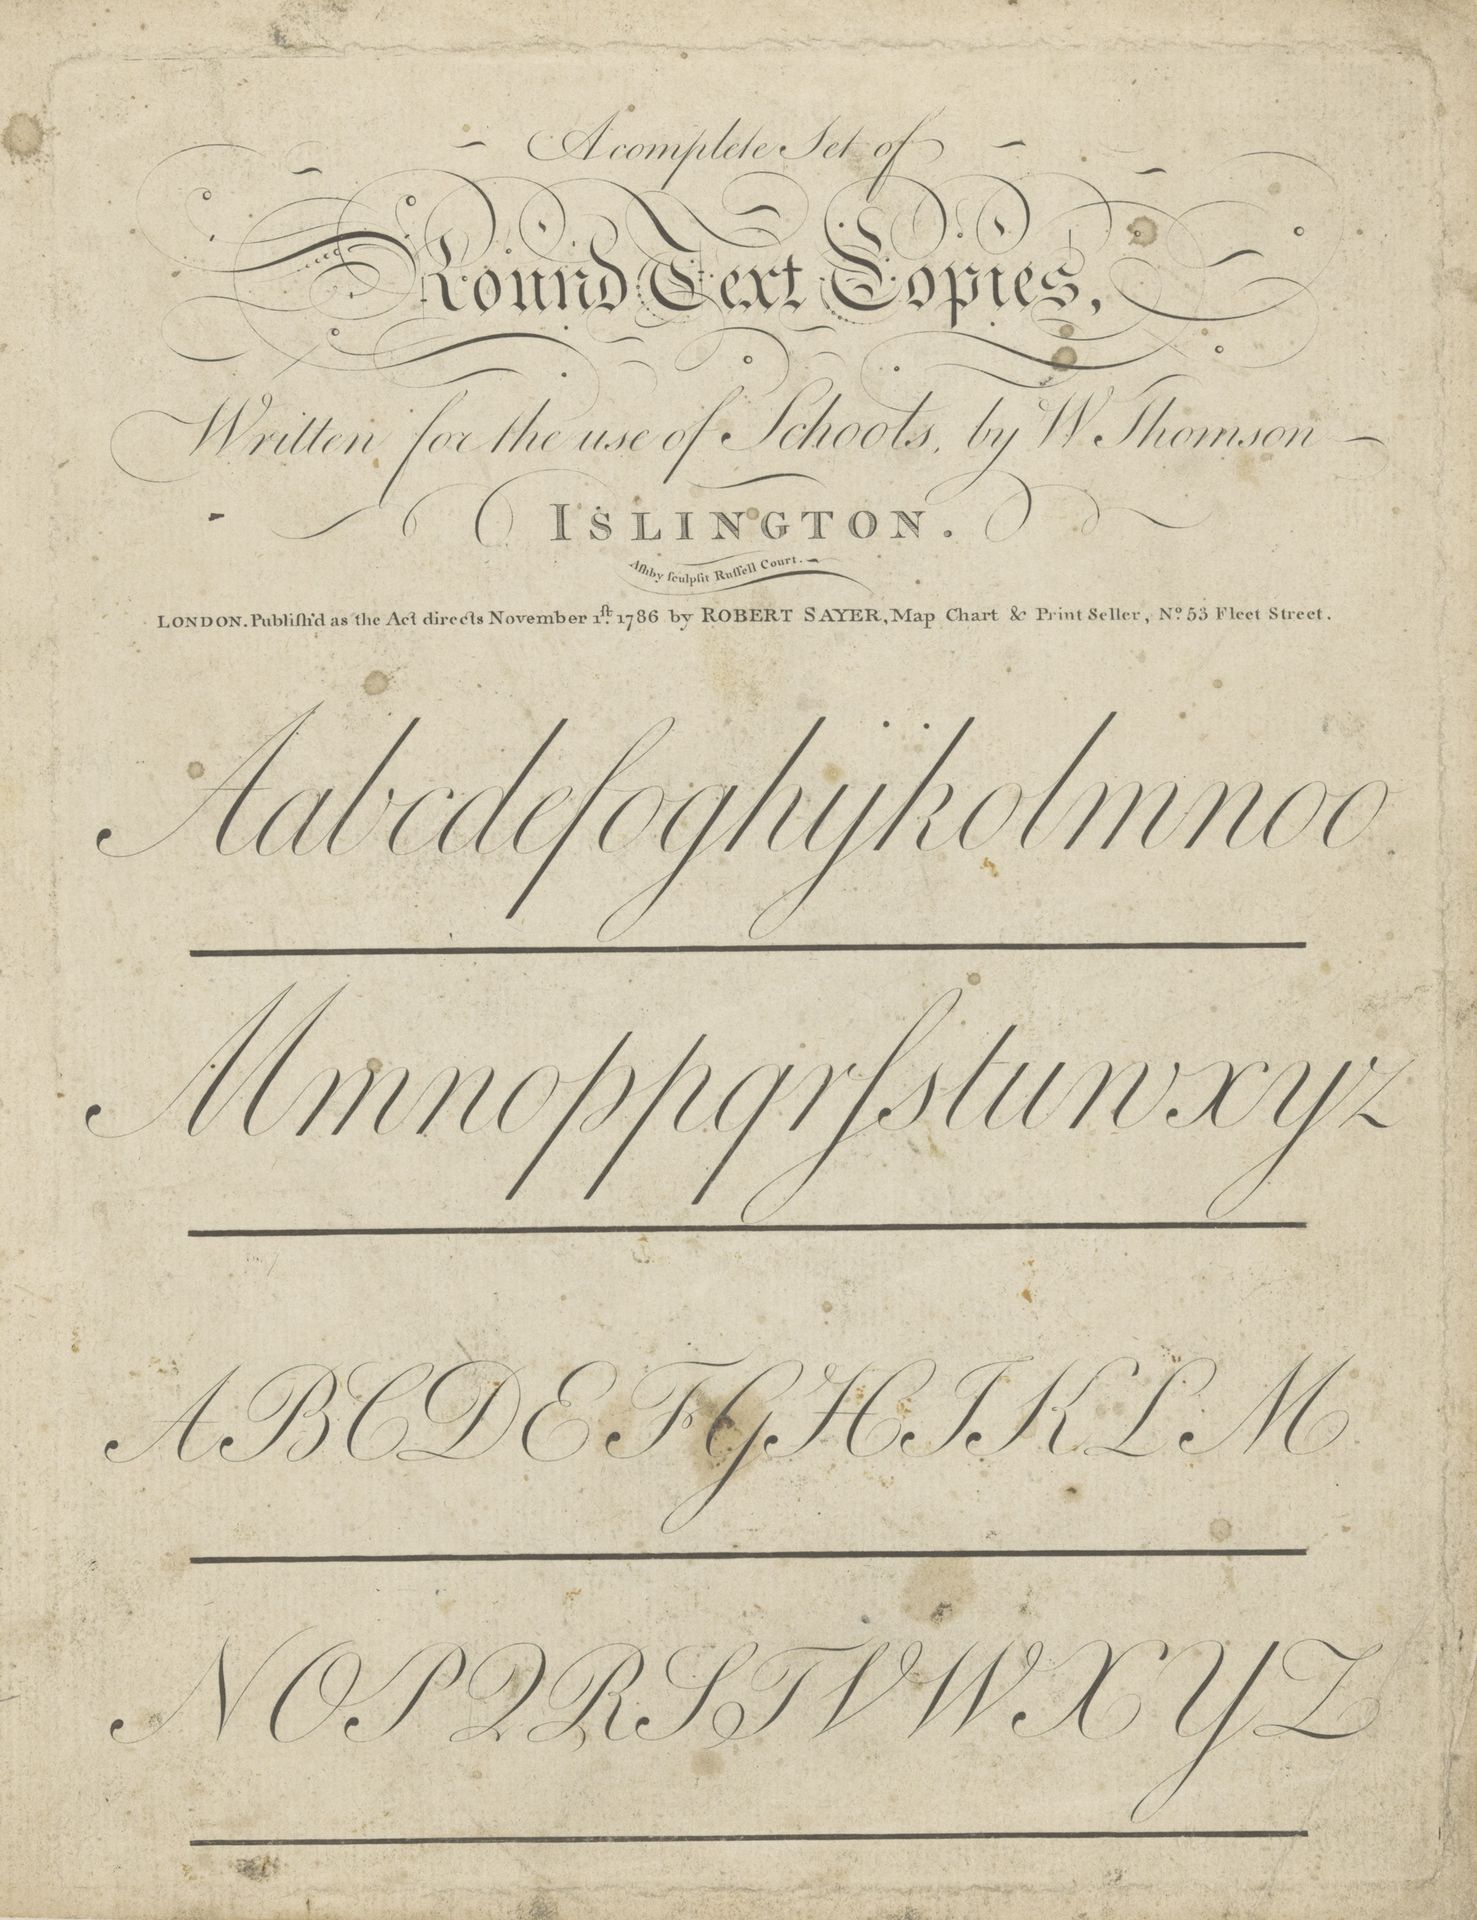 A complete Set of
Round Text Copies,
Written for the use of Schools, by W Thomson
ISLINGTON.
Aſhby ſculpſit Ruſſell Court.
LONDON. Publiſh'd as the Act directs November 1ſt. 1786 by ROBERT SAYER, Map Chart & Print Seller, No. 53 Fleet Street.
Aabcdefoghijkolmnoo
Mmnoppqrſstuwxyz
ABCDEFGHIKLM
NOPQRSTVWXYZ